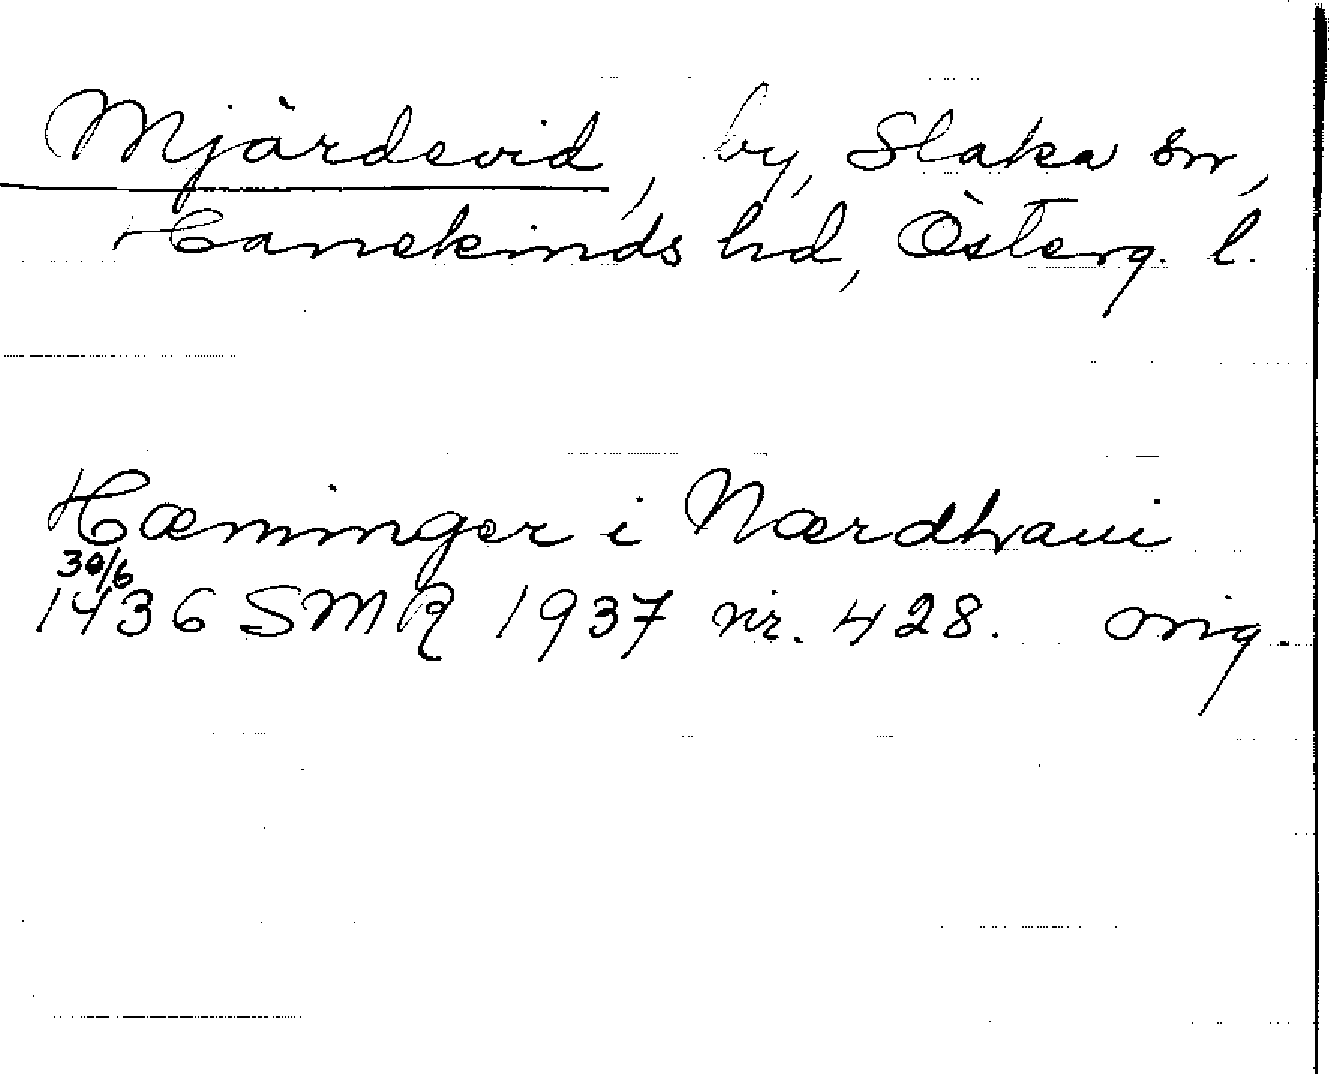 Mjärdevid, by, Slaka sn,
Hanekinds hd, Österg. l.
Hæminger i Nærdhwi
30/6
1436 SMR 1937 nr. 428. orig.